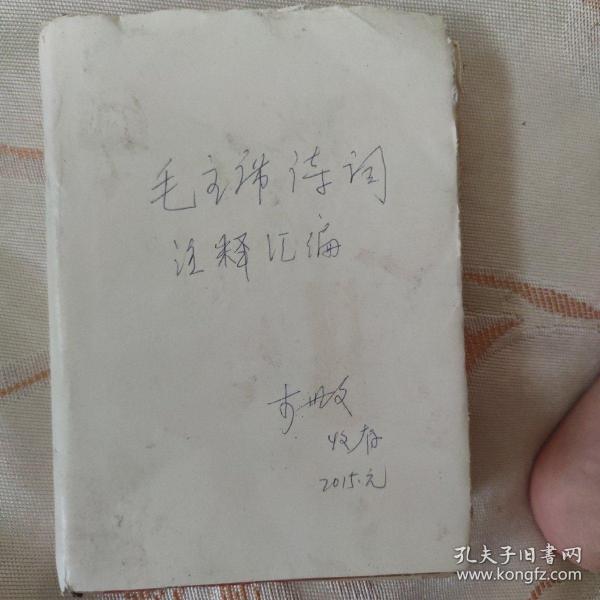 毛主席诗词
注释汇编
收存
2015.元
孔夫子旧书网
www.kongfz.com